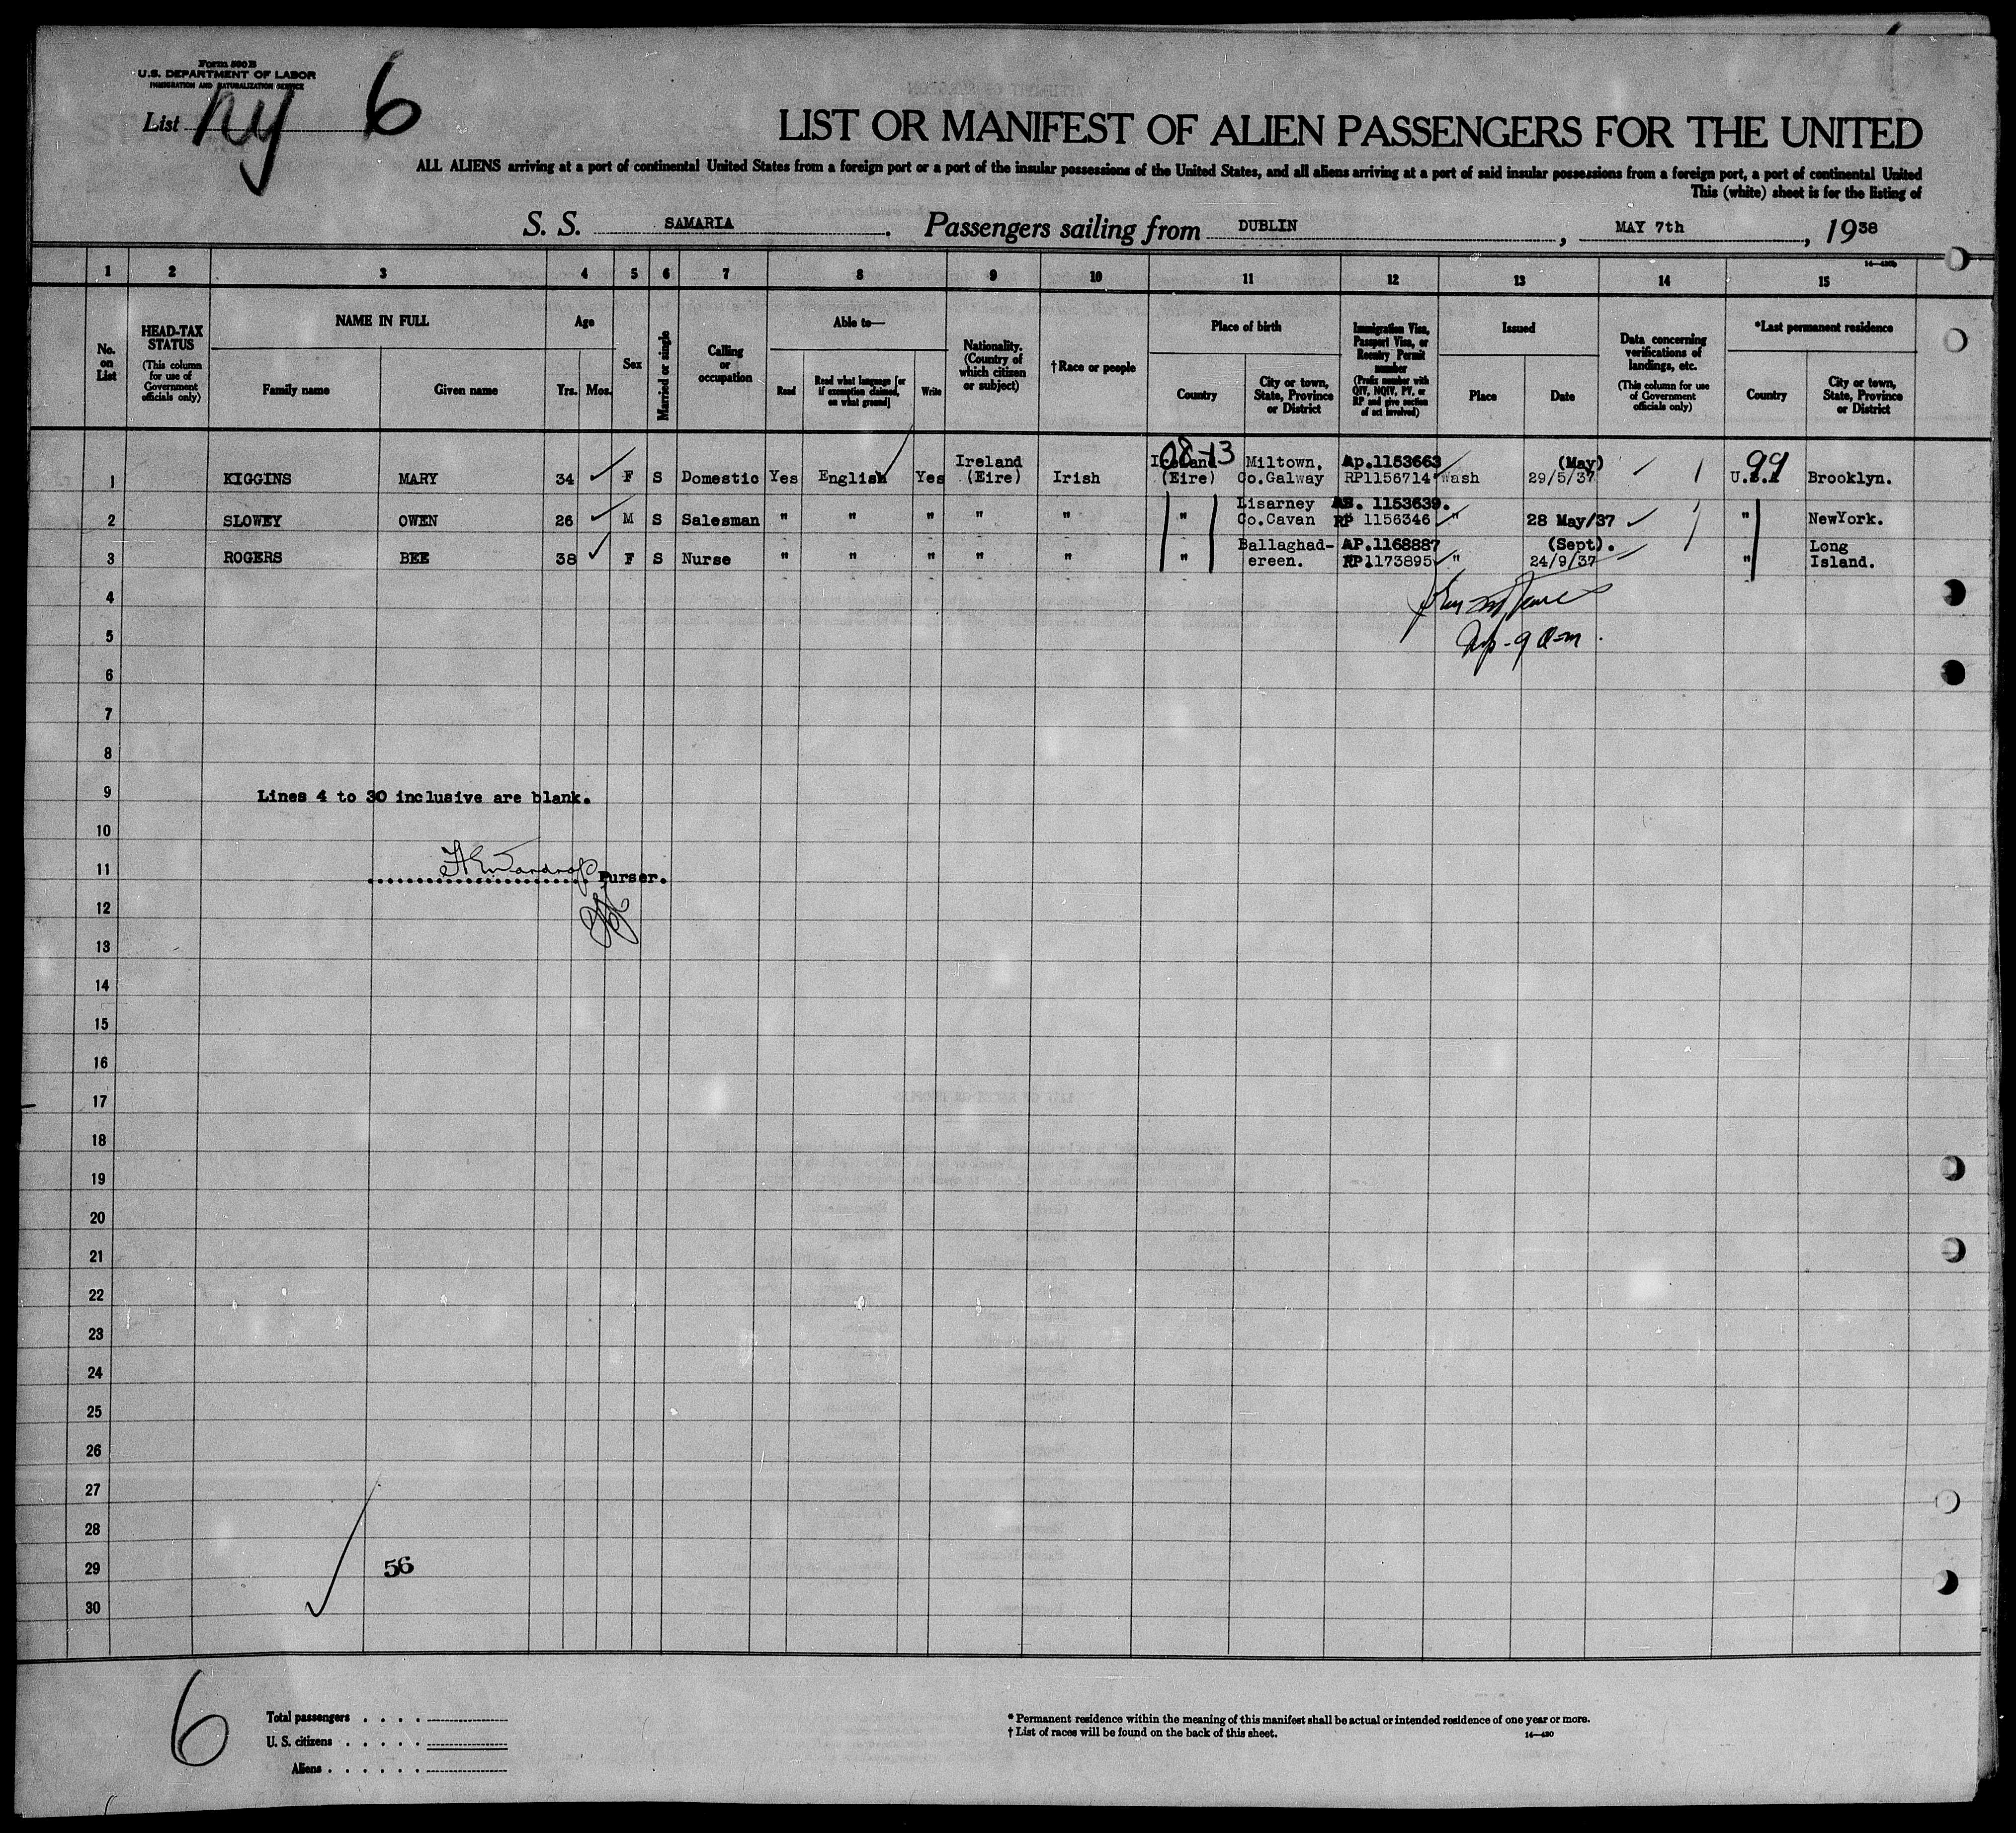 Form 500 B
U.S. DEPARTMENT OF LABOR
IMMIGRATION AND NATURALIZATION SERVICE
List ny 6
LIST OR MANIFEST OF ALIEN PASSENGERS FOR THE UNITED
ALL ALIENS arriving at a port of continental United States from a foreign port or a port of the insular possessions of the United States, and all aliens arriving at a port of said insular possessions from a foreign port, a port of continental United
This (white) sheet is for the listing of
S. S. SAMARIA. Passengers sailing from DUBLIN, MAY 7th, 1938
1 2 3 4 5 6 7 8 9 10 11 12 13 14 15
No. on List
HEAD-TAX STATUS
(This column for use of Government officials only)
NAME IN FULL
Family name
Given name
Age
Yrs. Mos.
Sex
Married or single
Calling or occupation
Able to—
Read
Read what language [or if exemption claimed, on what ground]
Write
Nationality. (Country of which citizen or subject)
†Race or people
Place of birth
Country
City or town, State, Province or District
Immigration Visa, Passport Visa, or Reentry Permit number
(Prefix number with QIV, NQIV, PV, or RP and give section of act involved)
Issued
Place
Date
Data concerning verifications of landings, etc.
(This column for use of Government officials only)
*Last permanent residence
Country
City or town, State, Province or District
08-13 99
Ireland Ireland Miltown. Ap.1153663 (May)
1 KIGGINS MARY 34 F S Domestic Yes English Yes (Eire) Irish (Eire) Co.Galway RP1156714 Wash 29/5/37 U.S.A Brooklyn.
Lisarney 1153639.
2 SLOWEY OWEN 26 M S Salesman " " " " " " Co.Cavan RP 1156346 " 28 May/37 " NewYork.
Ballaghad- AP.1168887 (Sept). Long
3 ROGERS BEE 38 F S Nurse " " " " " " ereen. RP1173895 " 24/9/37 " Island.
4
5
6
7
8
9 Lines 4 to 30 inclusive are blank.
10
11 Purser.
12
13
14
15
16
17
18
19
20
21
22
23
24
25
26
27
28
29 56
30
6
Total passengers . . . .
U. S. citizens . . . . .
Aliens . . . . . .
* Permanent residence within the meaning of this manifest shall be actual or intended residence of one year or more.
† List of races will be found on the back of this sheet. 14—430